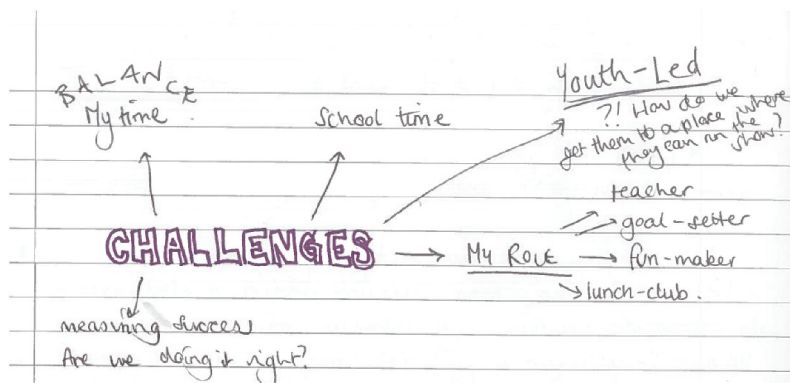 BALANCE
My time
School time
Youth-Led
?! How do we
get them to a place where
they can run the
show?
CHALLENGES
My Role
teacher
goal-setter
fun-maker
lunch-club.
measuring success
Are we doing it right?